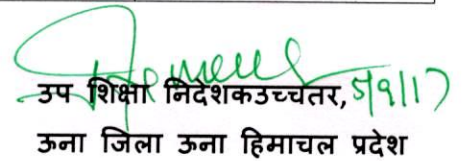 उप शिक्षा निदेशकउच्चतर, 5/9/17
ऊना जिला ऊना हिमाचल प्रदेश